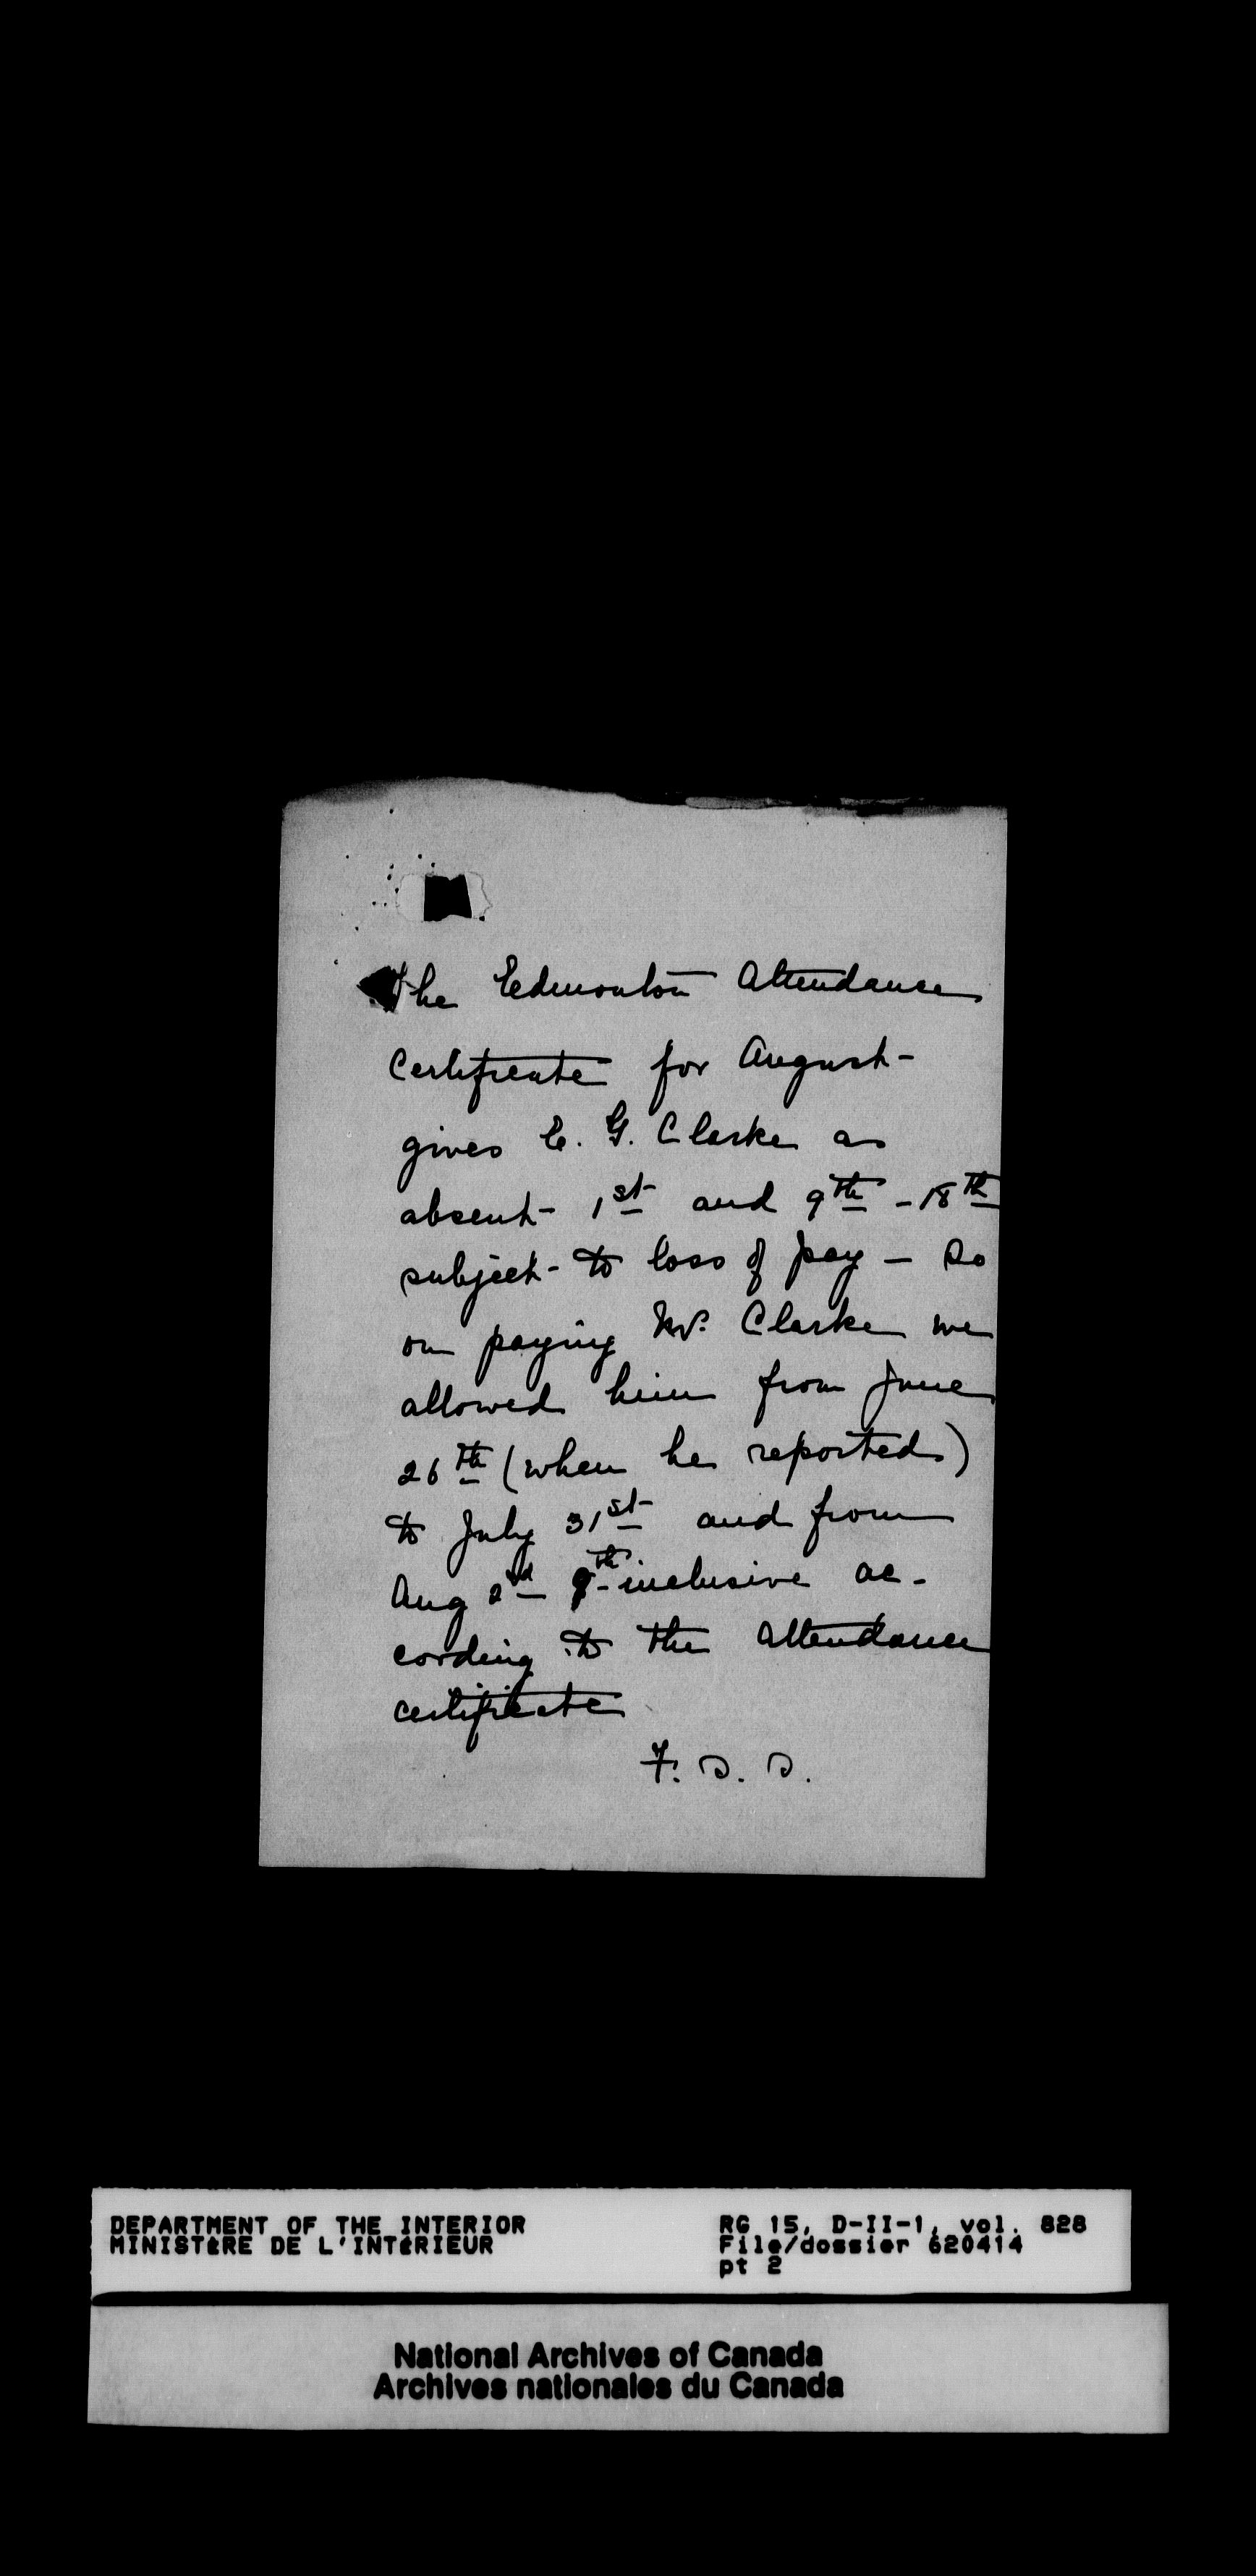 The Edmonton Attendance
Certificate for August
gives E. G. Clarke as
absent 1st and 9th - 18th
subject to loss of pay - So
on paying Mr. Clarke we
allowed him from June
26th (when he reported)
to July 31st and from
Aug 2nd - inclusive ac-
cording to the attendance
certificate
F. D. D.
DEPARTMENT OF THE INTERIOR
MINISTèRE DE L'INTéRIEUR
RG 15, D-II-1, vol. 828
File/dossier 620414
pt 2
National Archives of Canada
Archives nationales du Canada